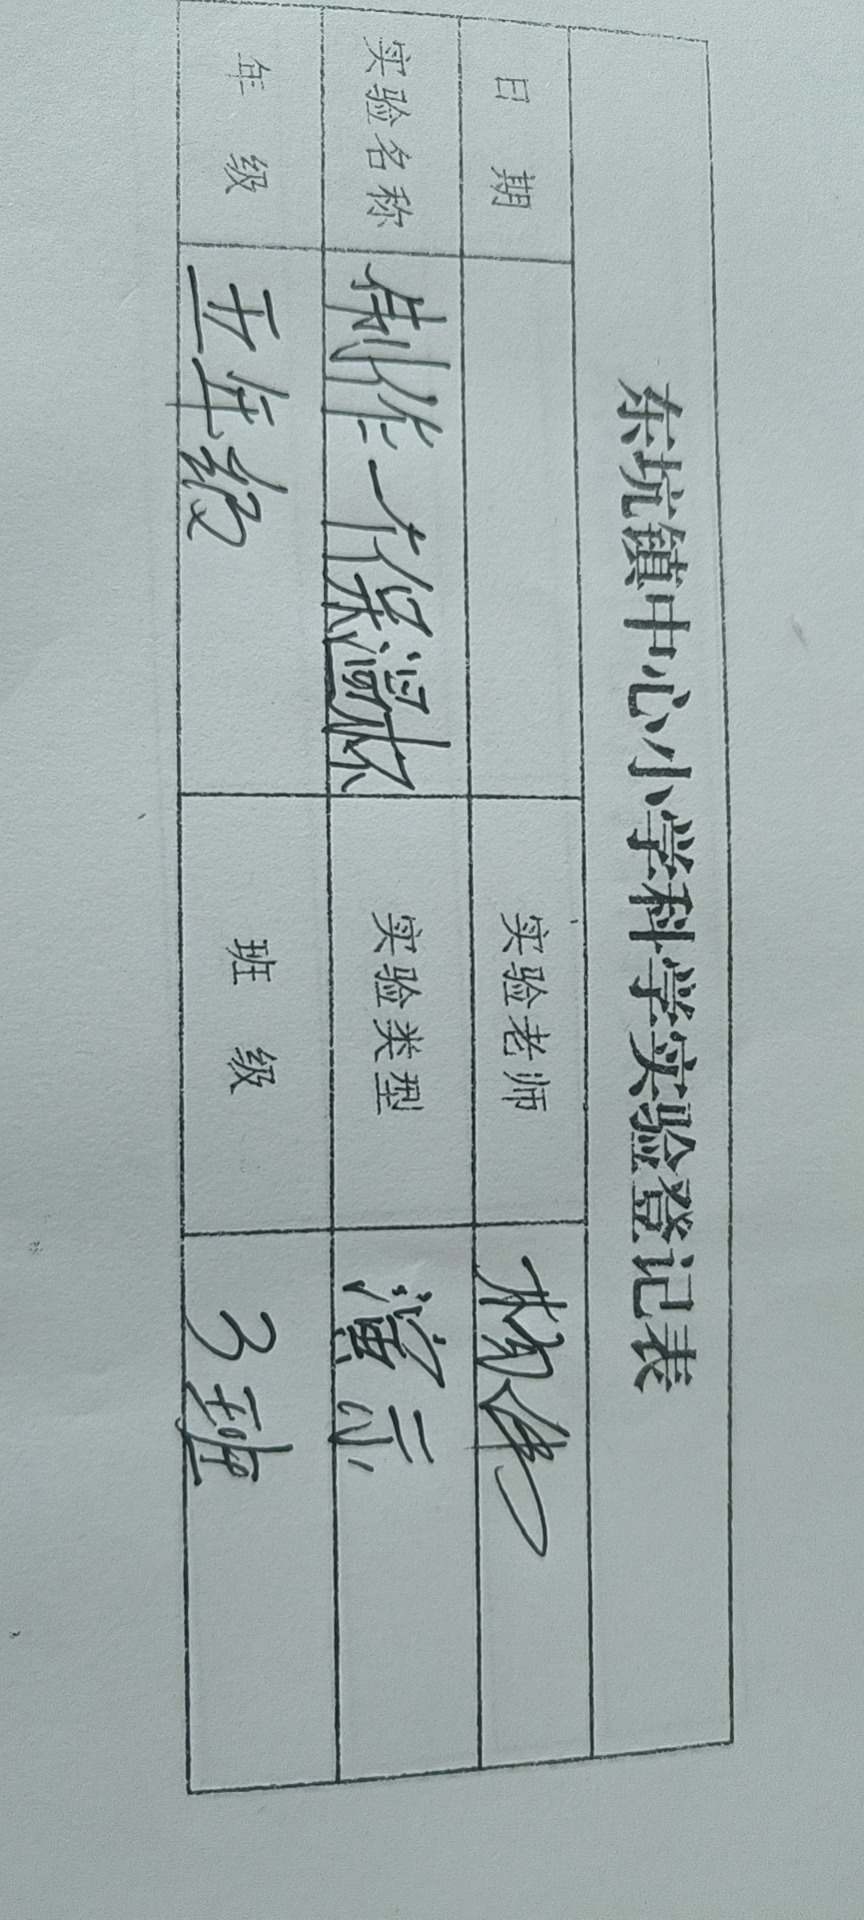 东坑镇中心小学科学实验登记表
日 期 实验老师 杨伟
实验名称 制作一个保温杯 实验类型 演示
年 级 五年级 班 级 3班